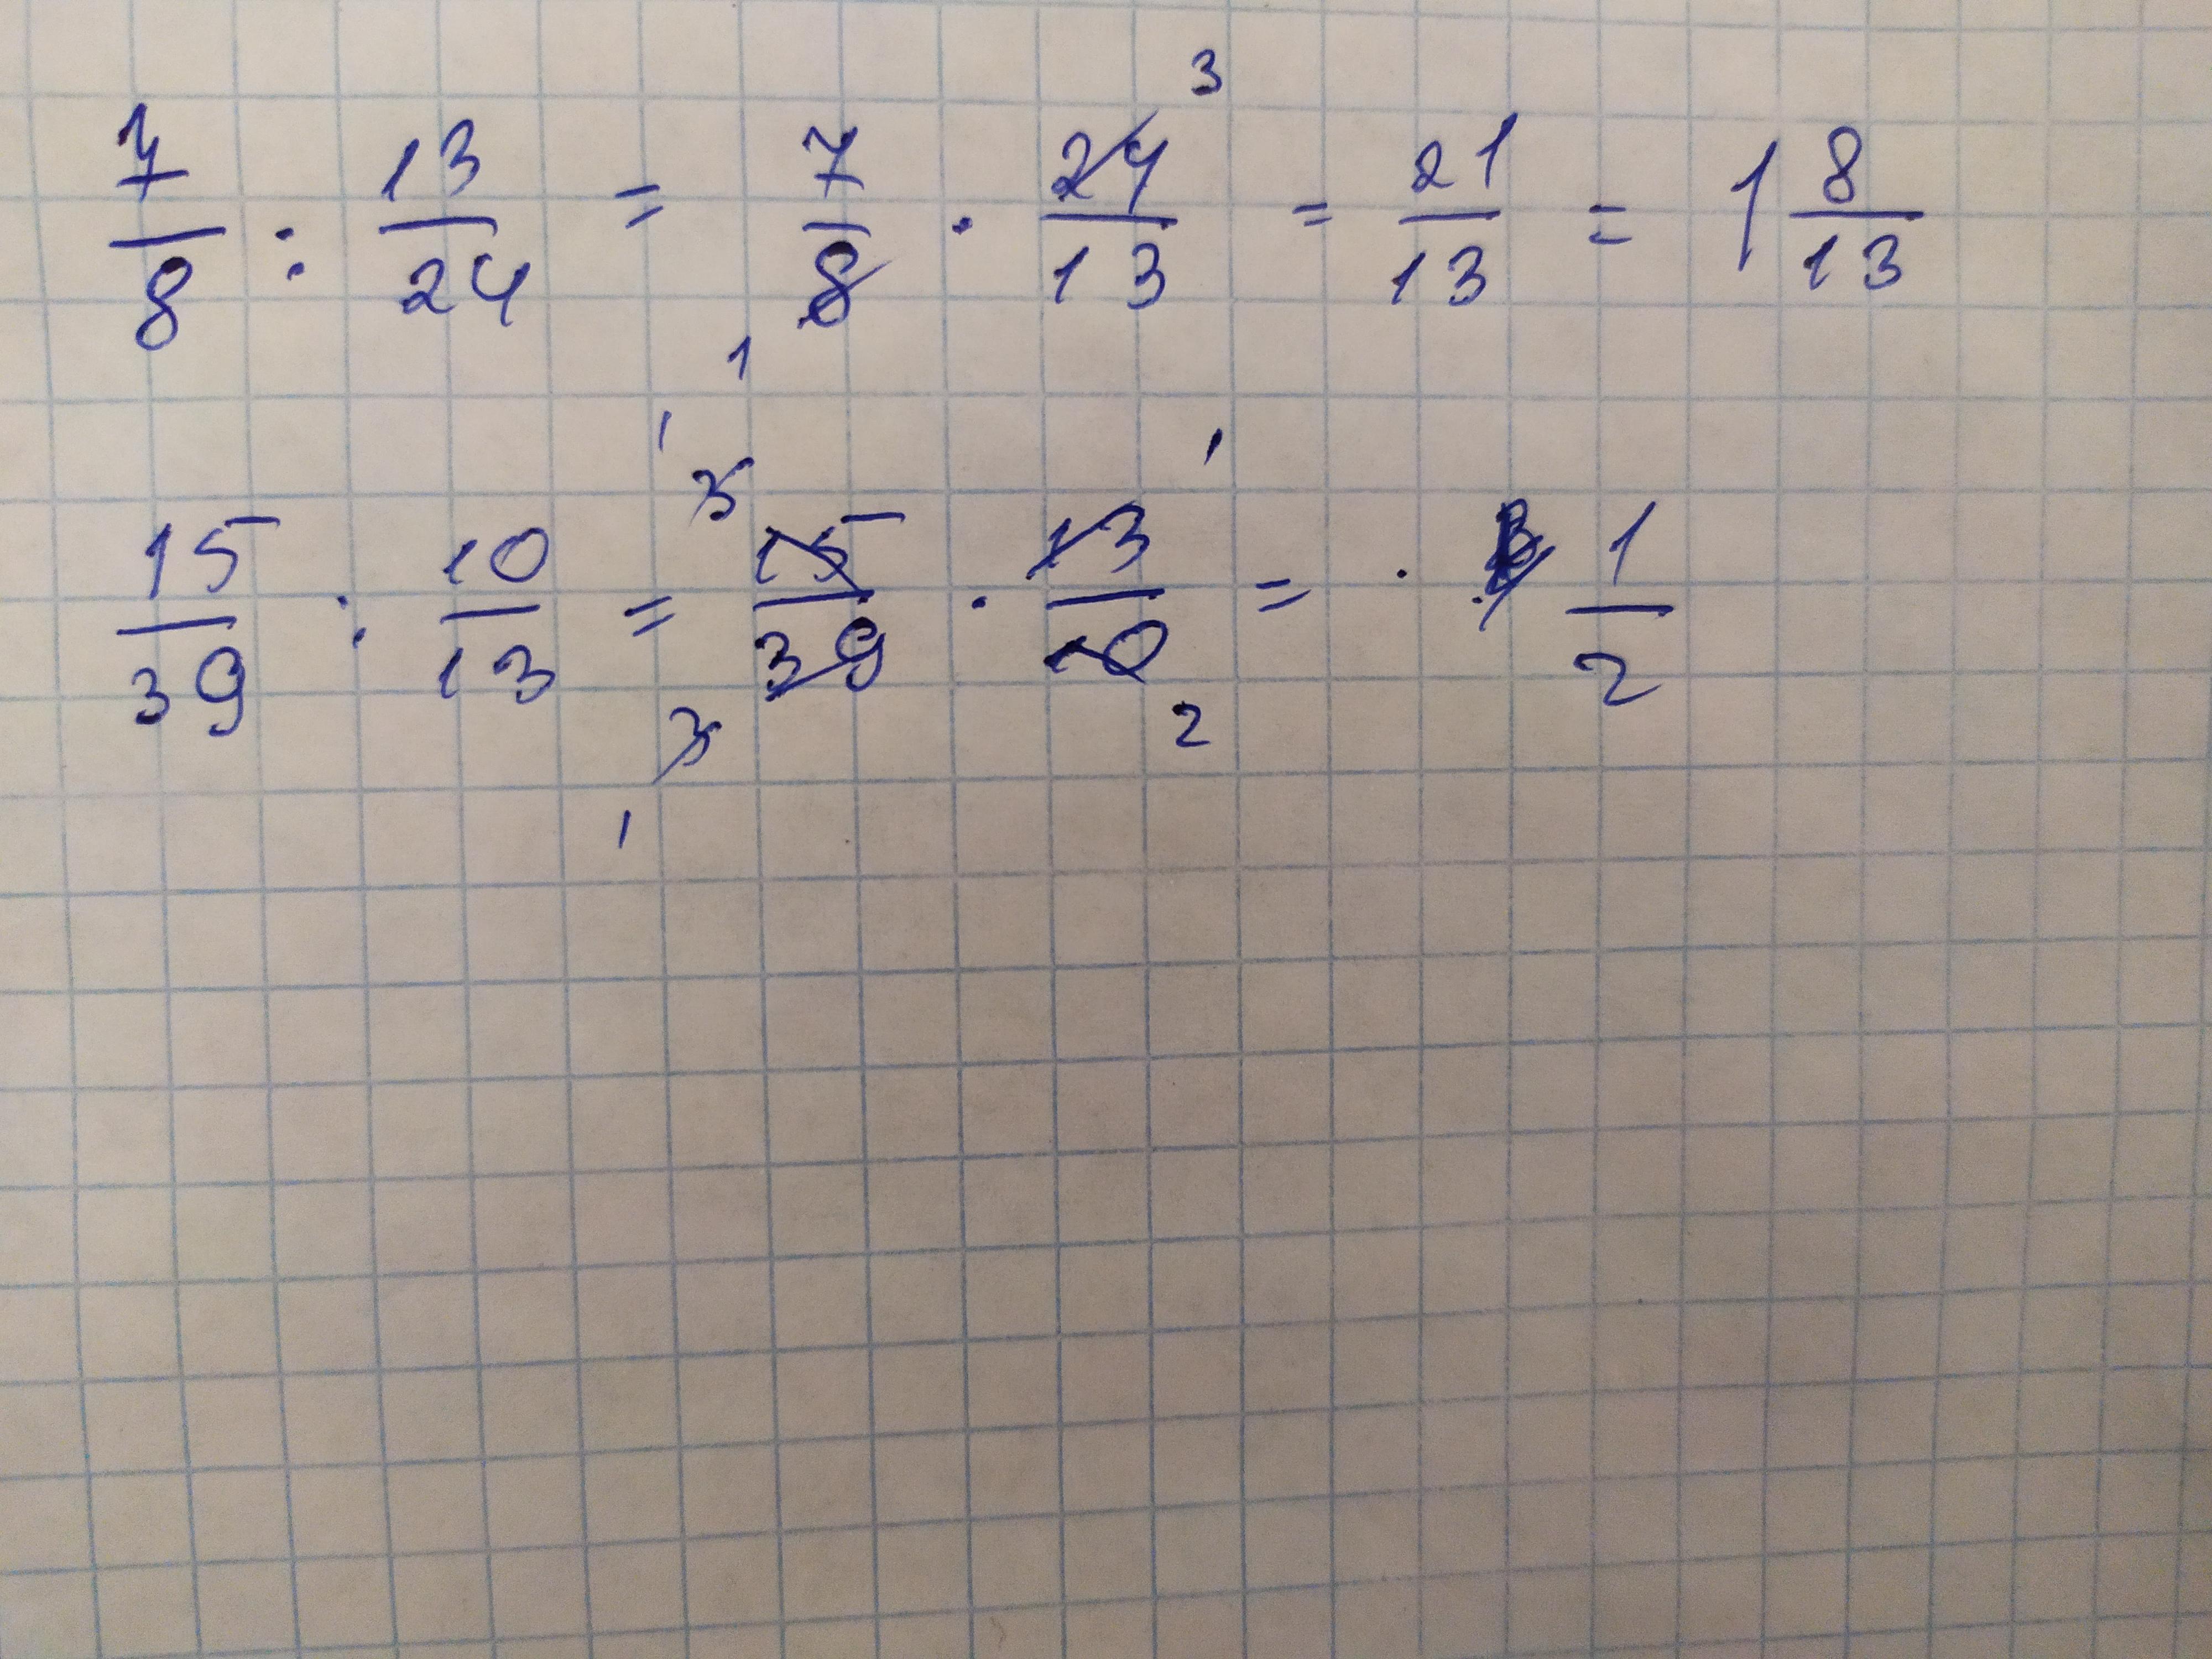 7/8 : 13/24 = 7/8 · 24/13 = 21/13 = 1 8/13
3
1
15/39 : 10/13 = 15/39 · 13/10 = · 1/2
1 3 1
3 2
1